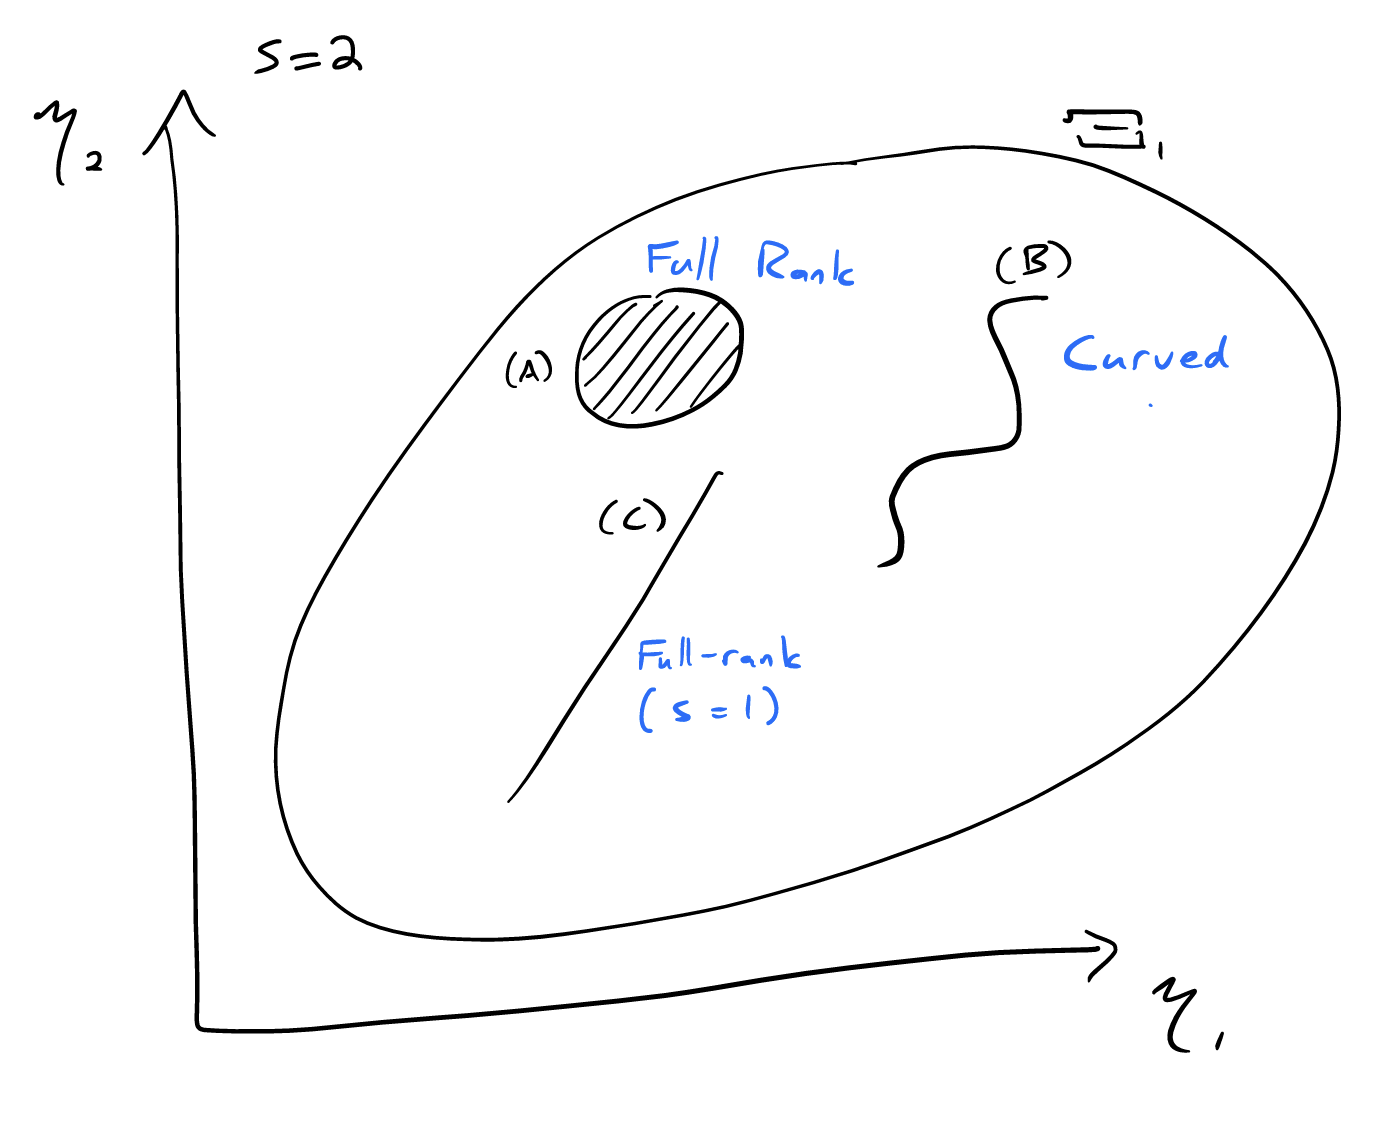 s=2
η₂
Ξ₁
Full Rank
(B)
(A)
Curved
(C)
Full-rank
(s=1)
η₁